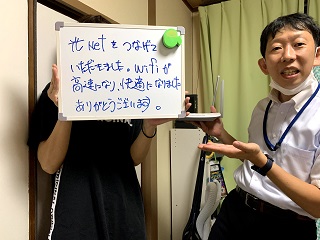 光Netをつなげて
いただきました。Wifiが
高速になり、快適になりました
ありがとうございます。